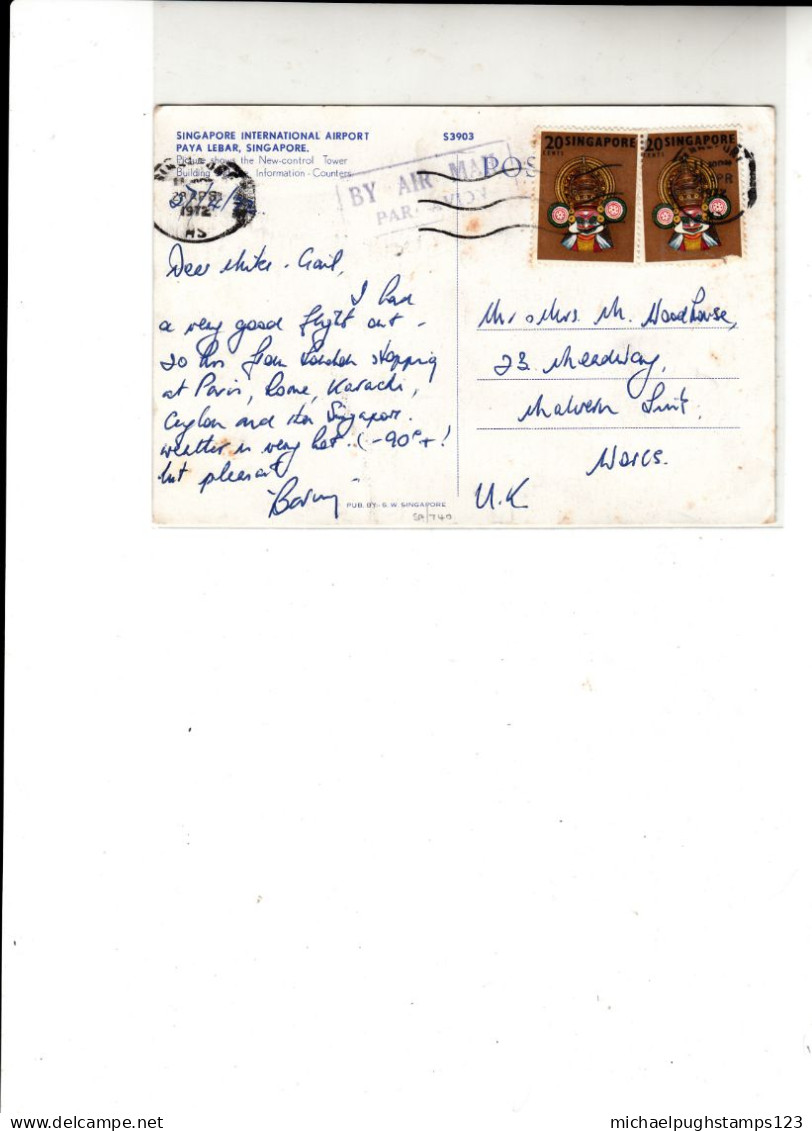 SINGAPORE INTERNATIONAL AIRPORT
PAYA LEBAR, SINGAPORE.
Picture shows the New-control Tower
Building Information-Counters.
S3903
POS
BY AIR MAIL
PAR AVION
20 SINGAPORE
CENTS
20 SINGAPORE
CENTS
1972
APR
1972
Dear Mike & Gail,
I had
a very good flight out -
20 hrs from London stopping
at Paris, Rome, Karachi,
Ceylon and then Singapore.
weather is very hot. (-90°+!
but pleasant
"Barry"
Mr & Mrs. M. Woodhouse,
23. Meadway,
Malvern Link,
Worcs.
U.K
PUB. BY: S. W. SINGAPORE
michaelpughstamps123